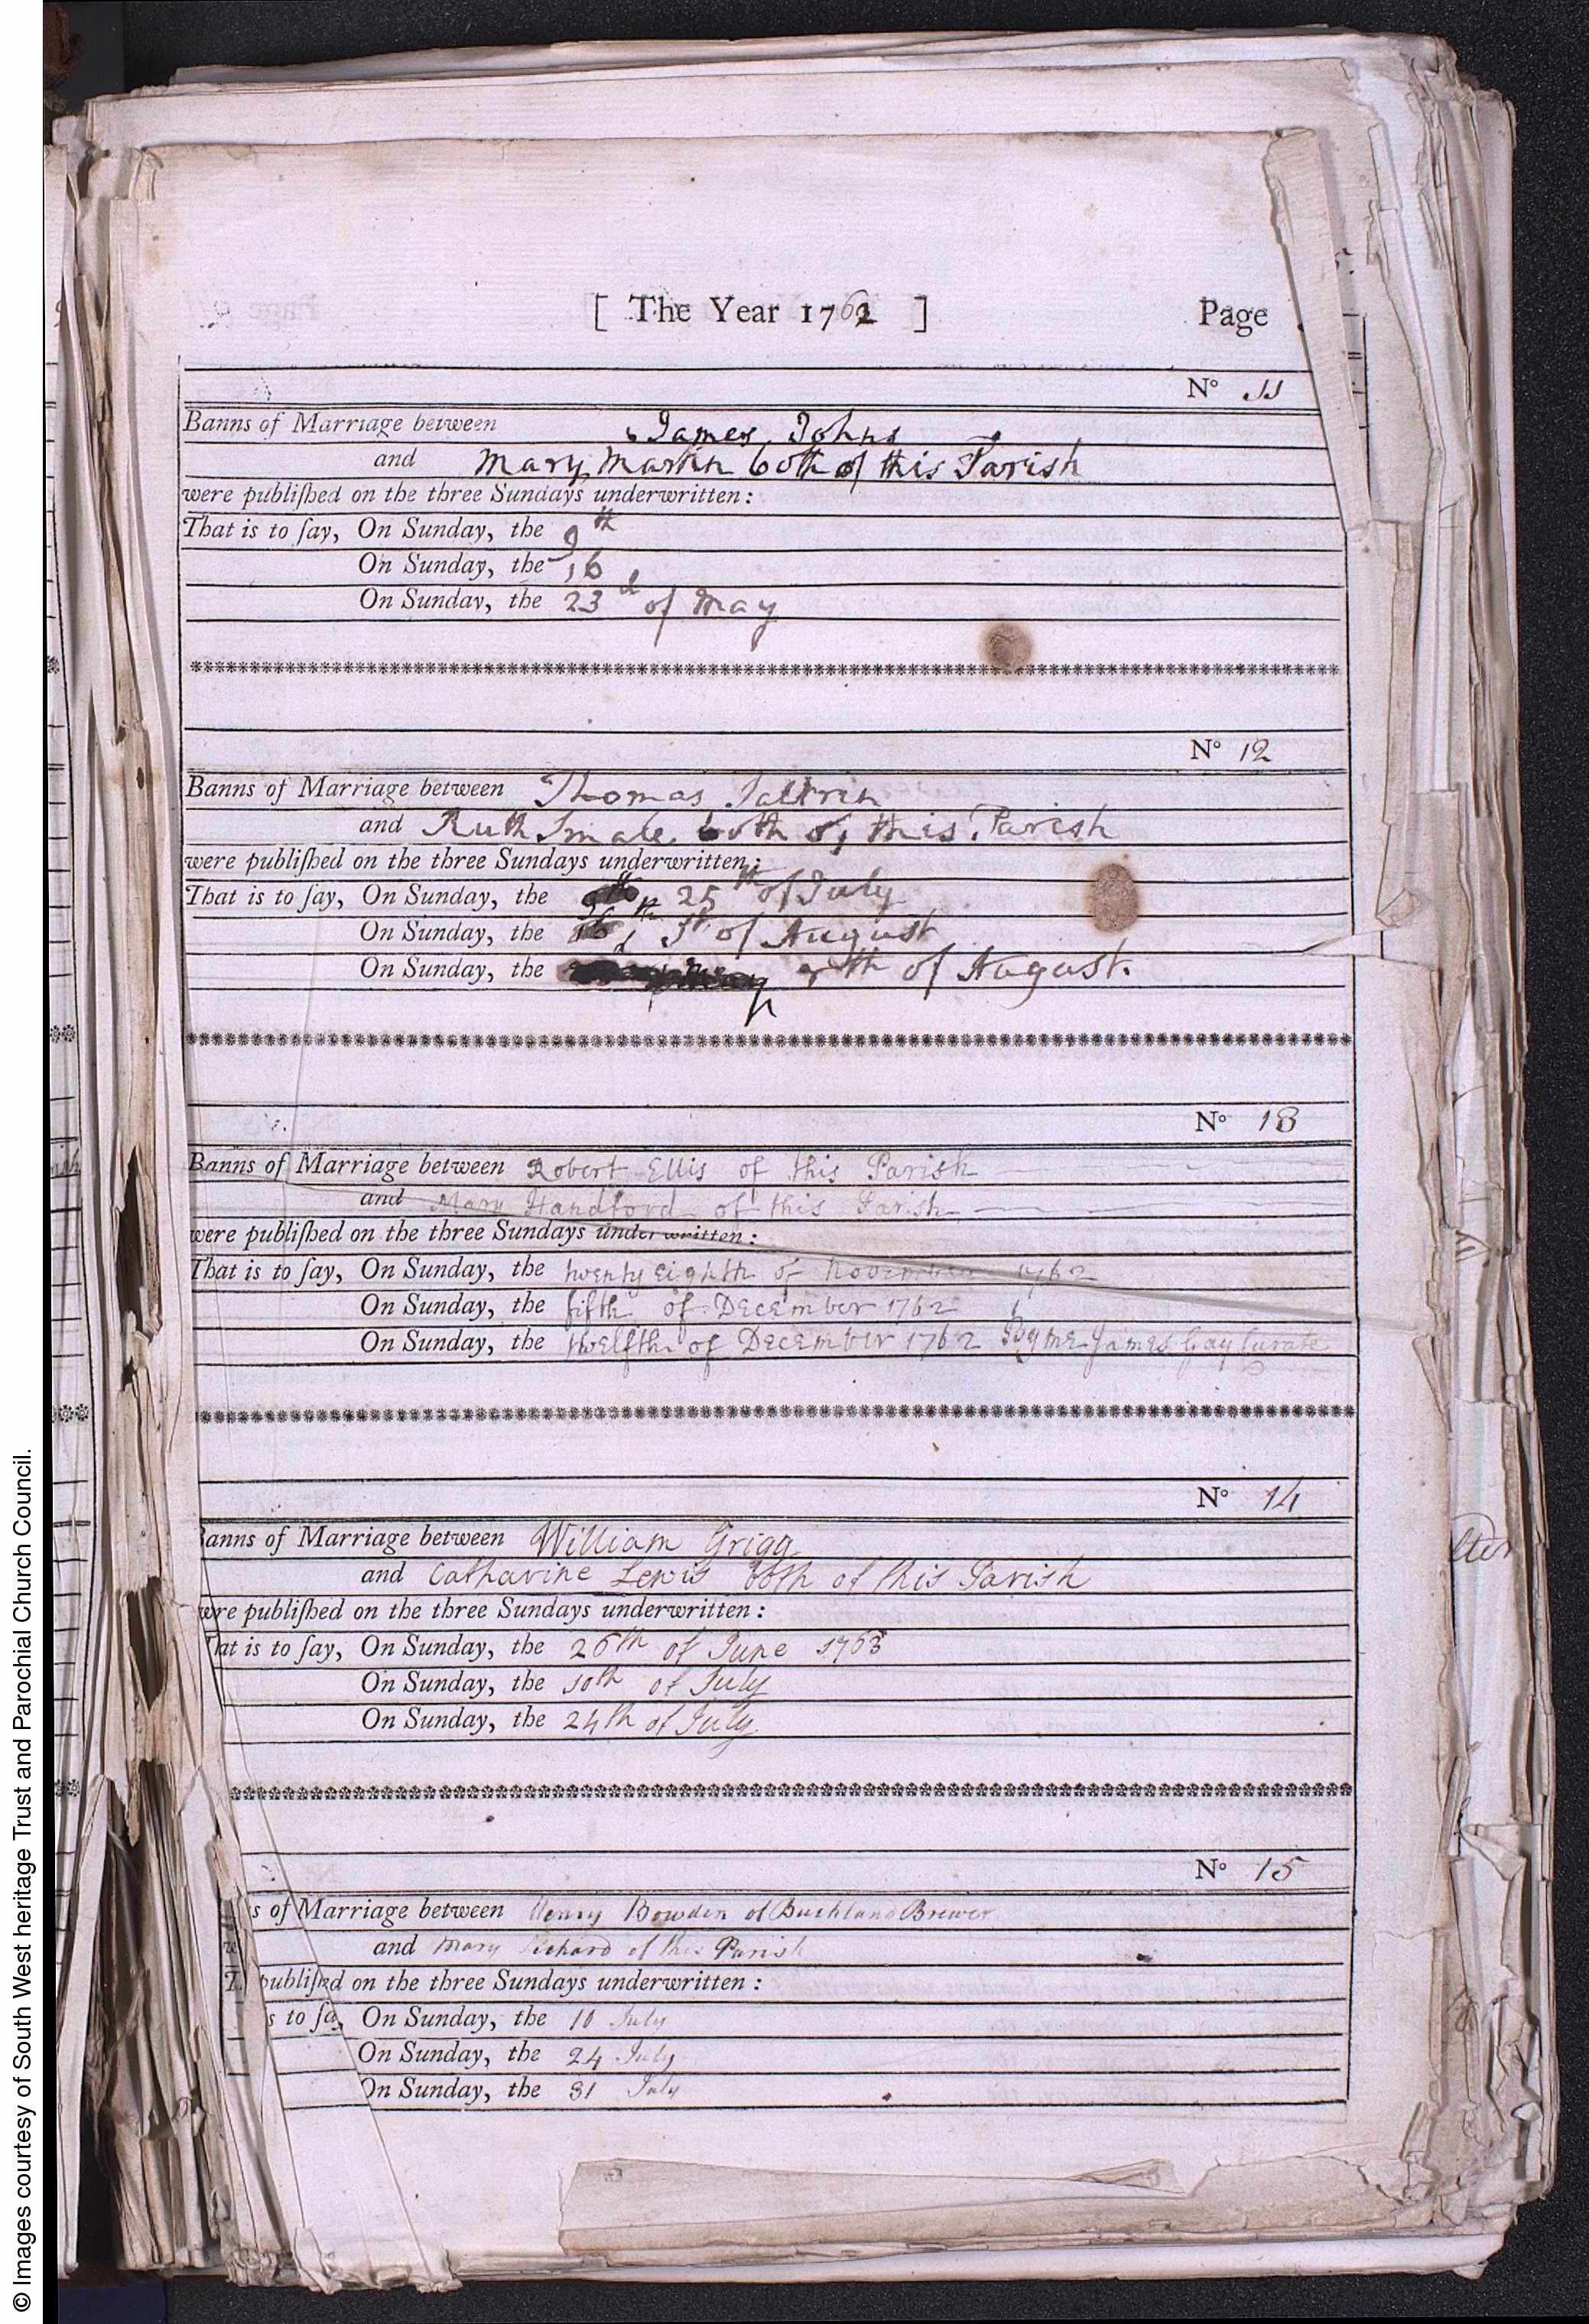 [ The Year 1762 ] Page
No 11
Banns of Marriage between James Johns
and Mary Martin both of this Parish
were published on the three Sundays underwritten:
That is to say, On Sunday, the 9th
On Sunday, the 16
On Sunday, the 23d of May
No 12
Banns of Marriage between Thomas
and Ruth Smale both of this Parish
were published on the three Sundays underwritten:
That is to say, On Sunday, the 25th of July
On Sunday, the 1st of August
On Sunday, the th of August.
No 13
Banns of Marriage between Robert Ellis of this Parish
and Mary Handford of this Parish
were published on the three Sundays underwritten:
That is to say, On Sunday, the twenty eighth of November 1762
On Sunday, the fifth of December 1762
On Sunday, the twelfth of December 1762 By me James Gay Curate
No 14
Banns of Marriage between William Grigg
and Catharine Lewis both of this Parish
were published on the three Sundays underwritten:
That is to say, On Sunday, the 26th of June 1763
On Sunday, the 10th of July
On Sunday, the 24th of July
No 15
s of Marriage between Henry Bowden of Buckland Brewer
and Mary of this Parish
published on the three Sundays underwritten:
s to say, On Sunday, the 10 July
On Sunday, the 24 July
On Sunday, the 31 July
© Images courtesy of South West heritage Trust and Parochial Church Council.